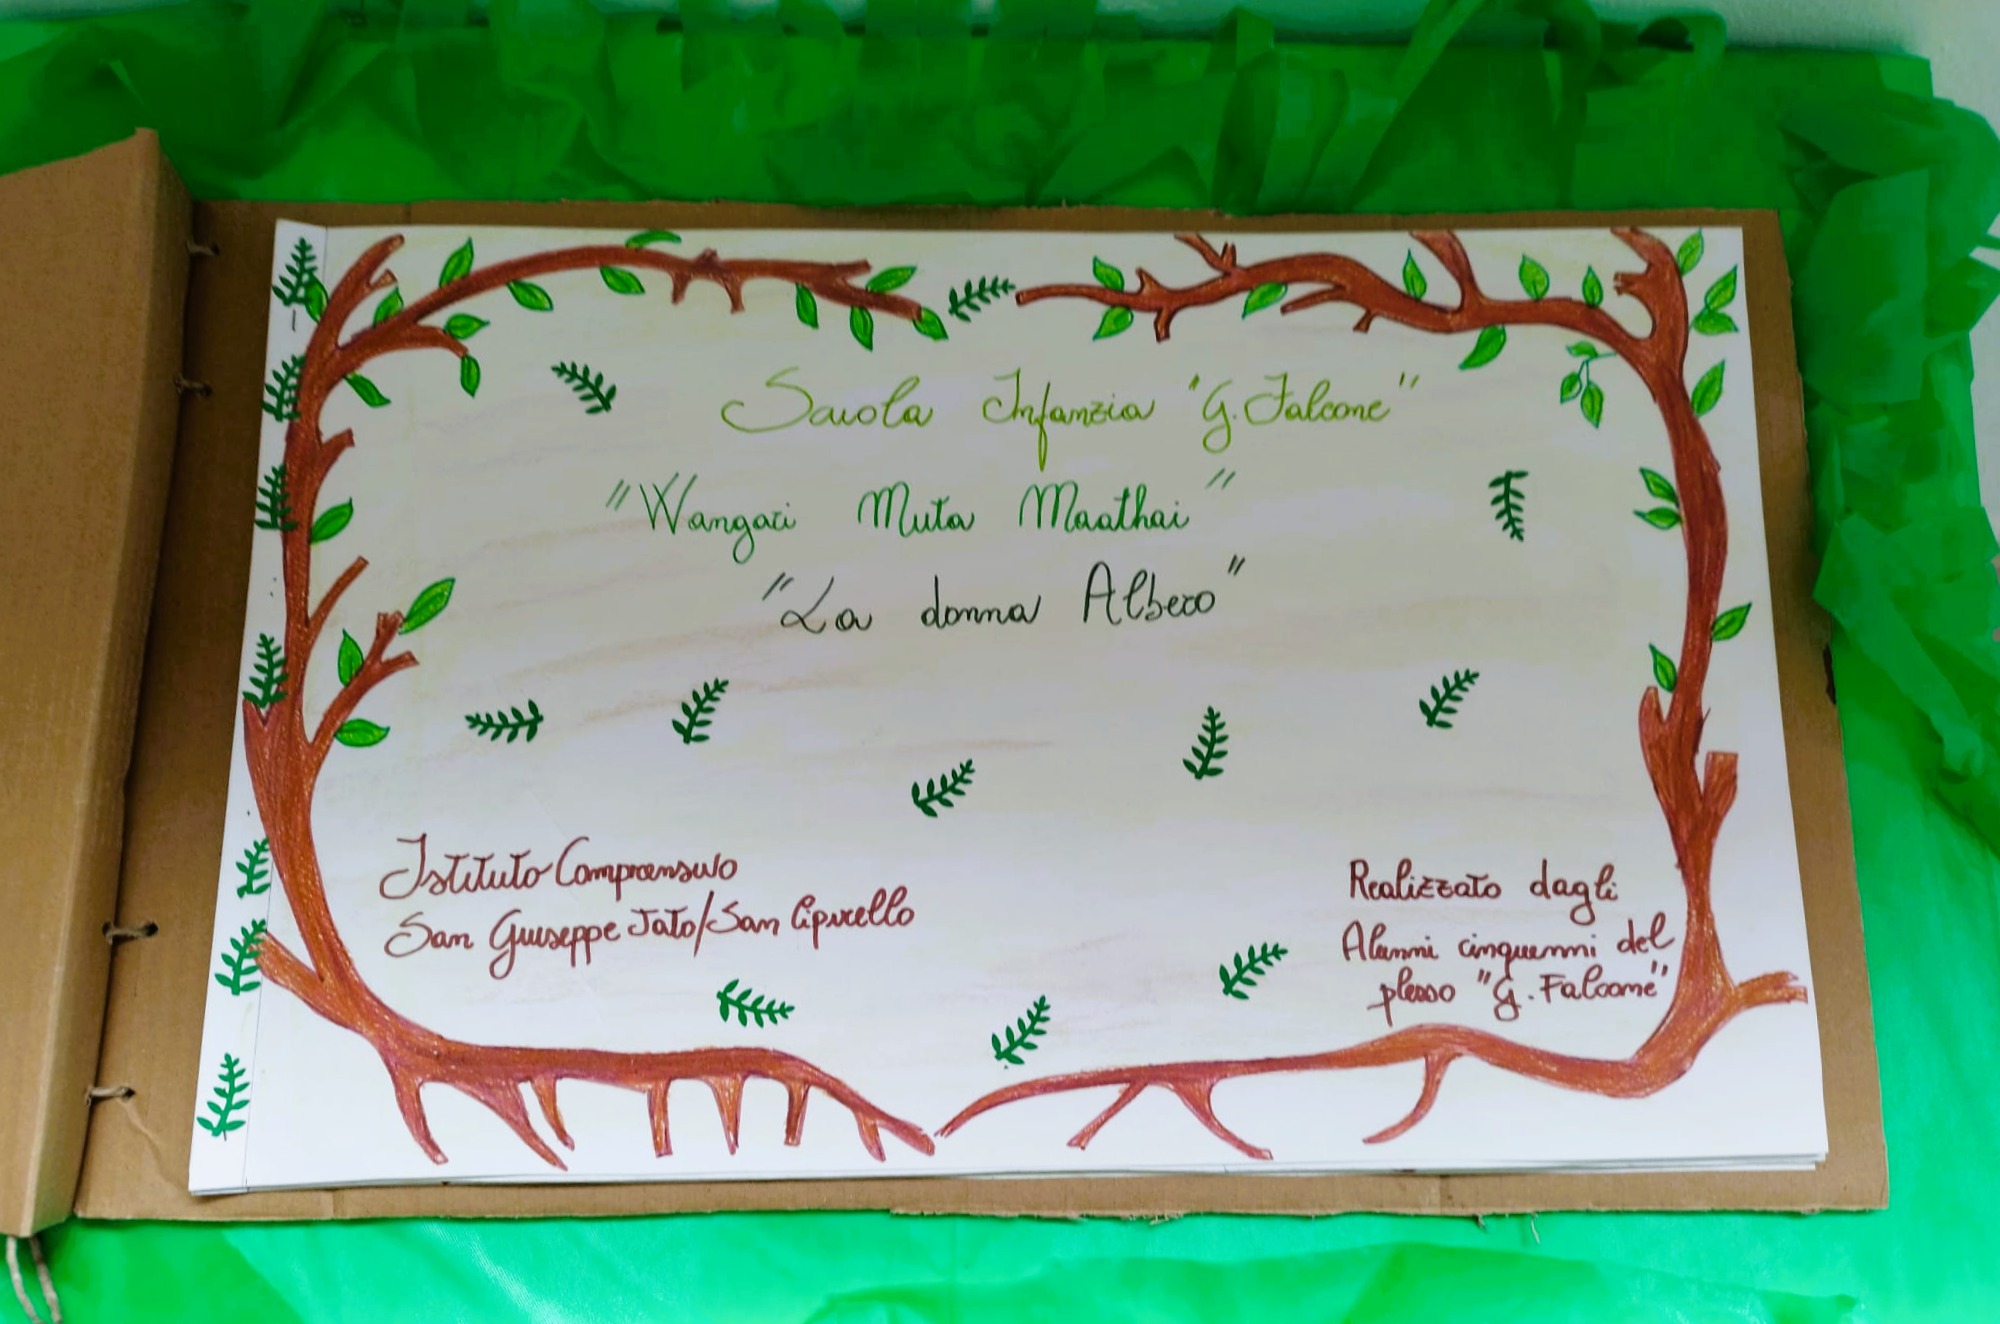 Scuola Infanzia "G. Falcone"
"Wangari Muta Maathai"
"La donna Albero"
Istituto Comprensivo
San Giuseppe Jato/San Cipirello
Realizzato dagli
Alunni cinquenni del
plesso "G. Falcone"